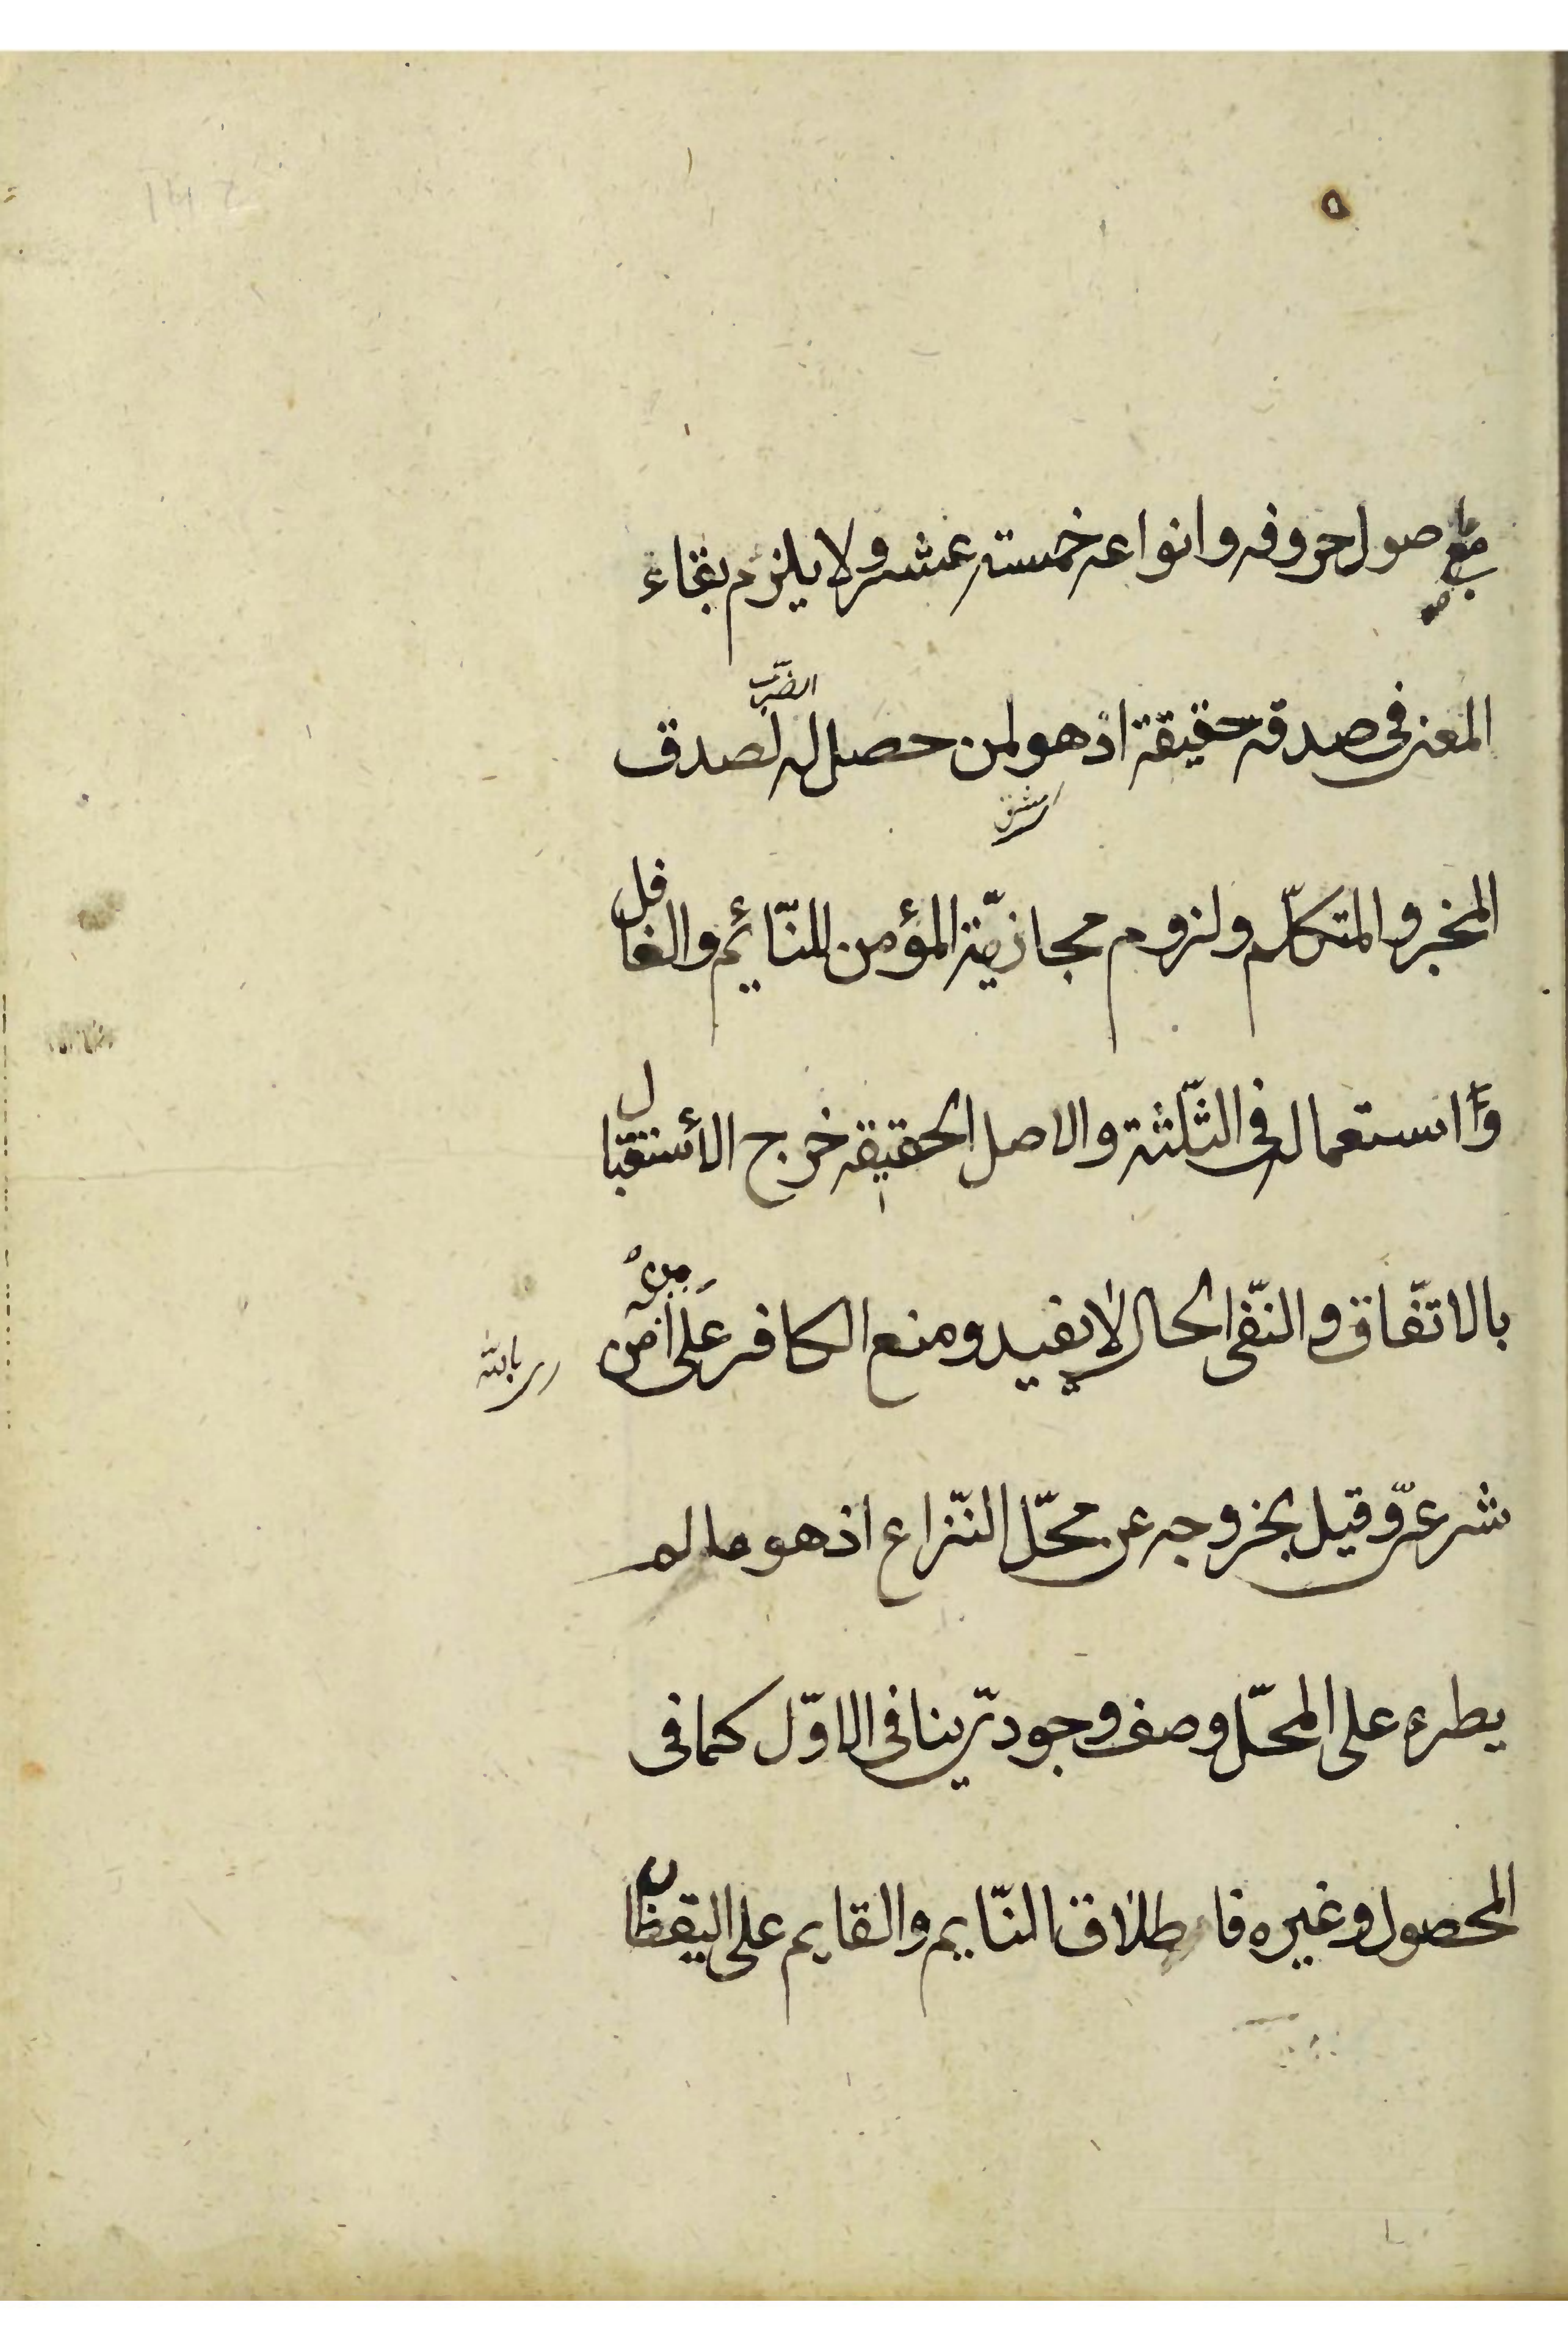 صول حروفه وانواعه خمسته عشر ولا يلزم بقاء
المعنى فى صدقه حقيقة اذ هو لمن حصل له لصدق
الضرب
المخبر والمتكلّم ولزوم مجازيّة المؤمن للنّائم والغافل
واستعماله فى الثّلثة والاصل الحقيقه خرج الأستقبال
بالاتّفاق والنّفى الحال لا يفيد ومنع الكافر على من امن
بالله
شرعىّ وقيل بخروجه عن محلّ النّزاع اذ هو ما لم
يطرء على المحلّ وصف وجودىّ ينافى الاوّل كما فى
المحصول وغيره فاطلاق النّايم والقايم على اليقظان